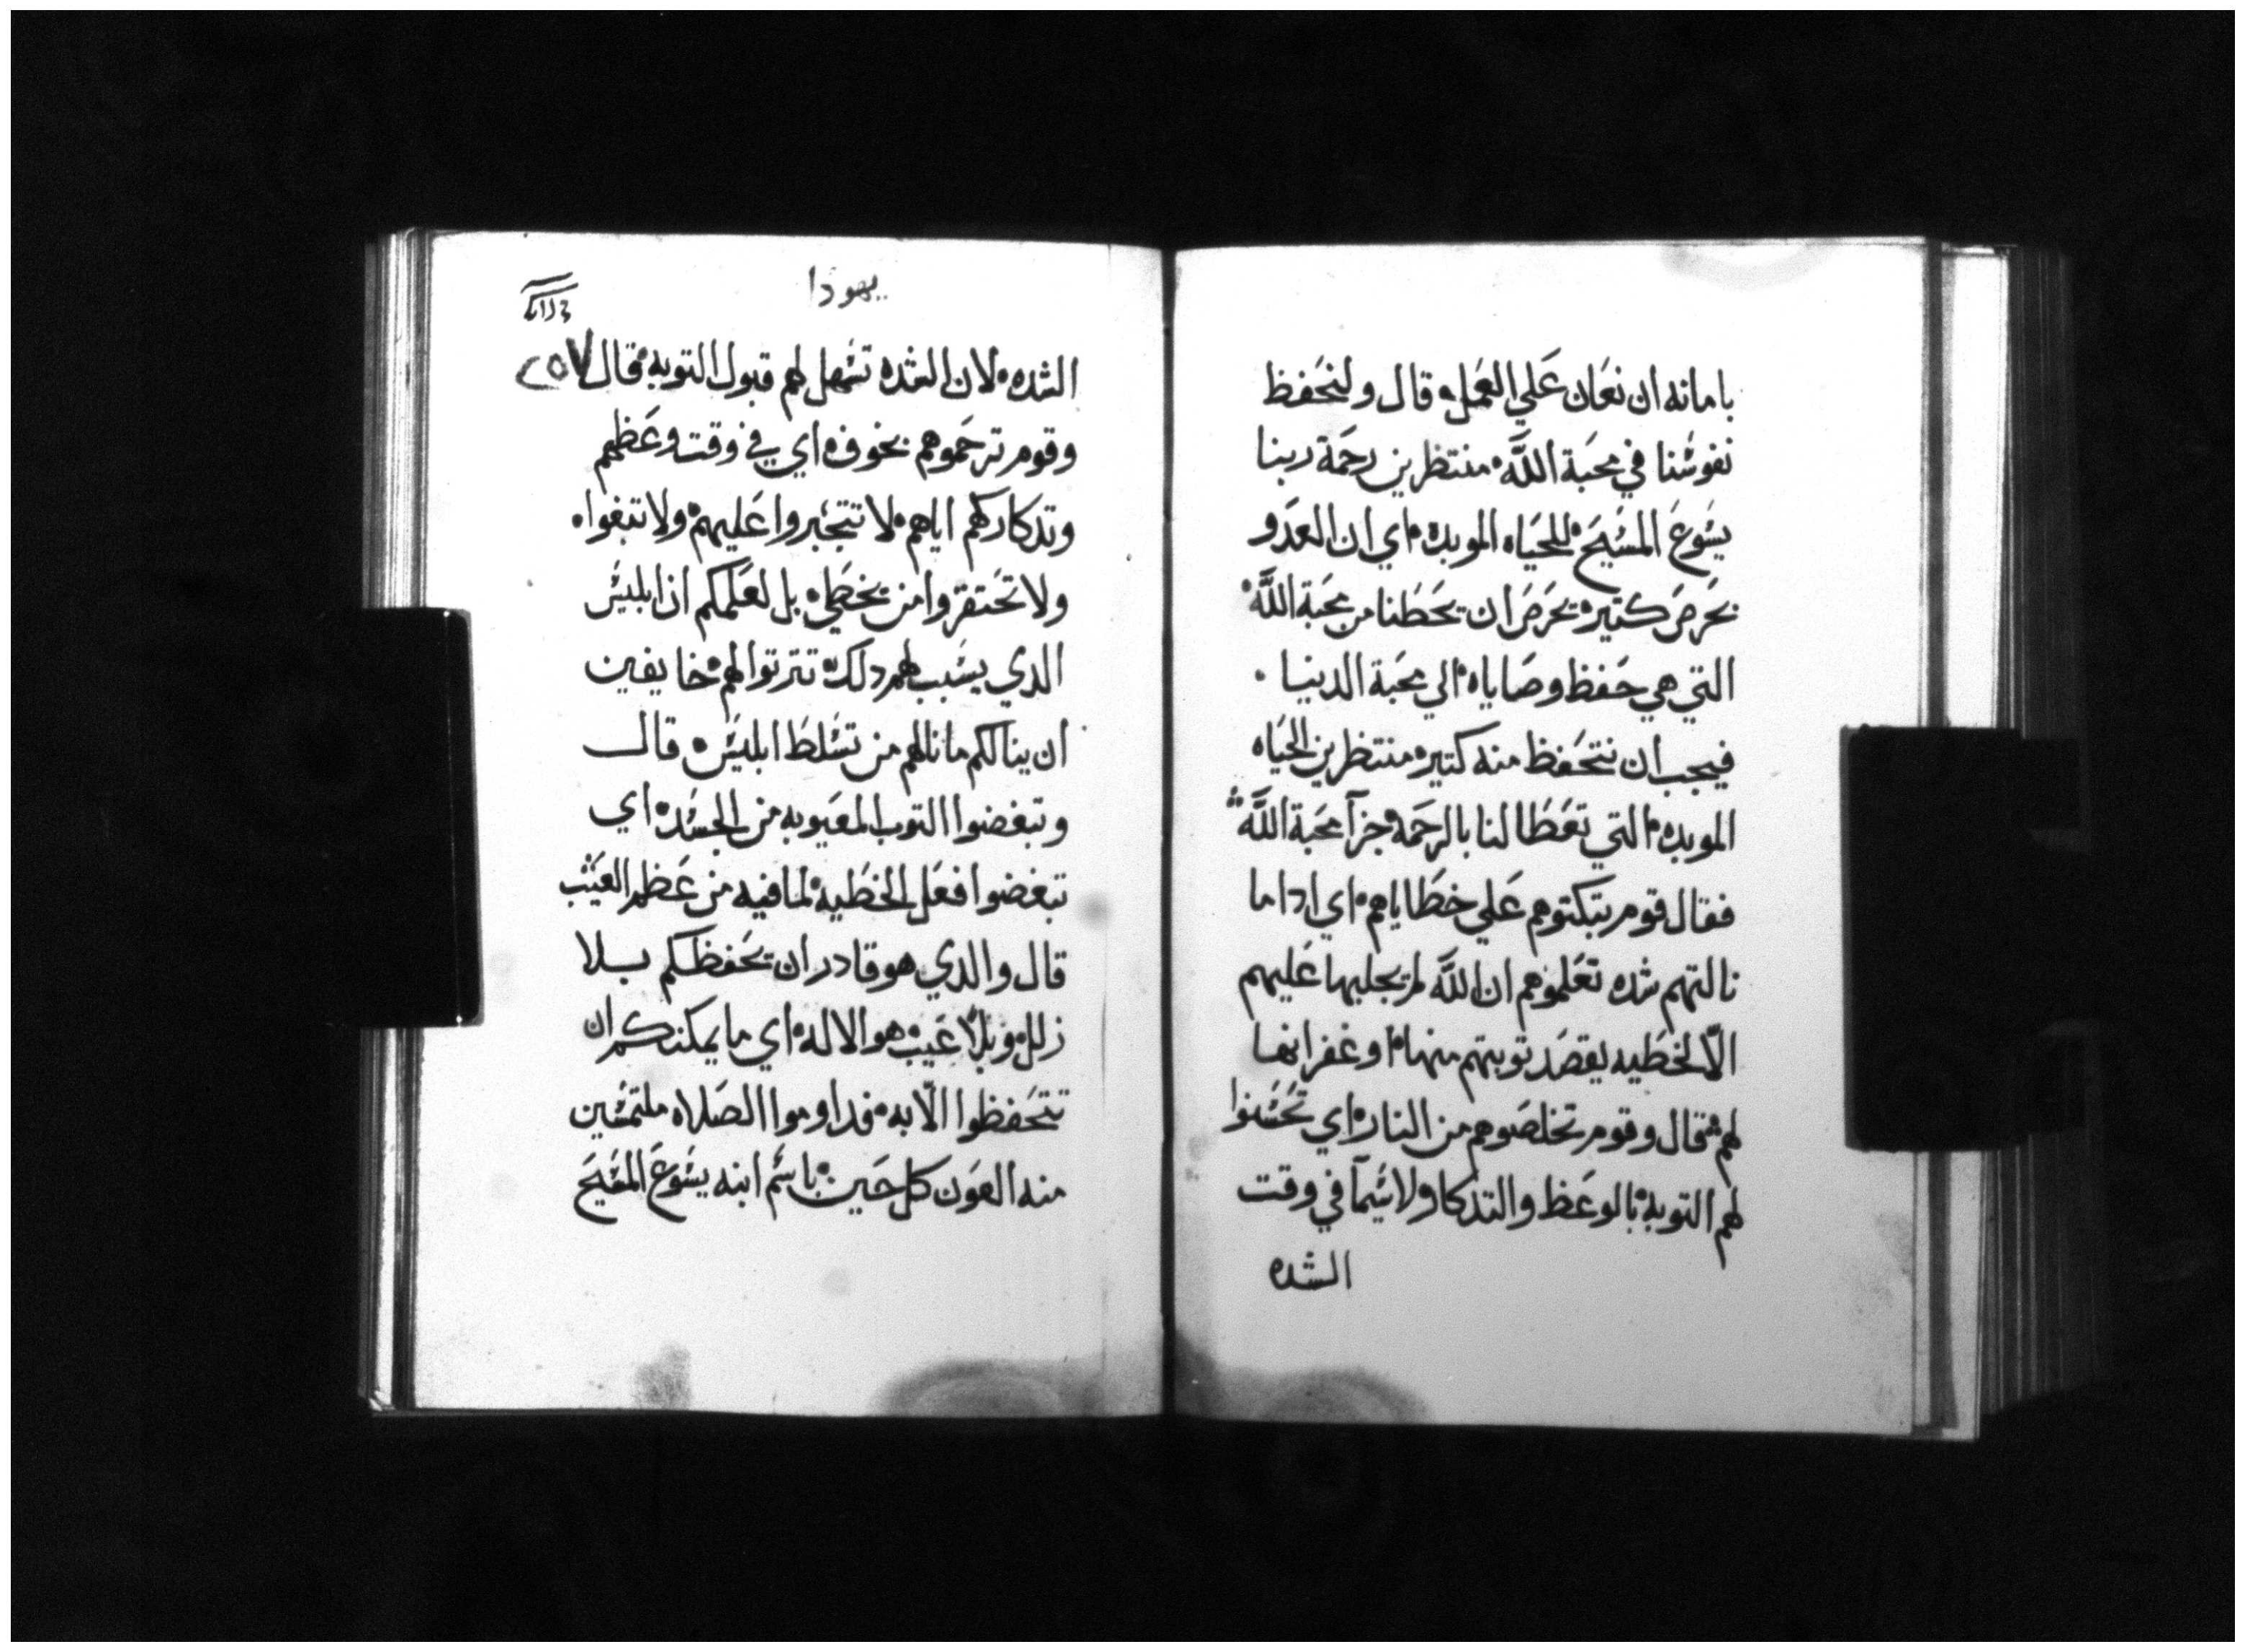 بامانه ان نعَان عَلي العَمل، قال ولنحَفظ
نفوسْنا في محبَة اللَّه، منتظرين رحَمة ربنا
يسْوعَ المسْيحَ للحَياه الموبده، اي ان العدَو
بحَرصَ كتير، يحَرَصَ ان يحَطَنا من محَبة اللَّه
التي هي حَفظ وصَاياه، الي محَبة الدنيا .
فيجب ان نتحَفظ منه كتير، منتظرين الحَياه
الموبده، التي تعَطَا لنا بالرحَمه جزآ محَبة اللَّه
فقال قوم تبكتوهم عَلي خطَاياهم، اي ادا ما
نالتهم شده تعَلموهم ان اللَّه لم يجلبها عَليهم
الّا لخطَيه يقصَد توبتهم منها، او غفرانها
لهم، قال وقوم تخلصَوهم من النار، اي تحَسْنوا
لهم التوبه، بالوعَظ والتدكار ولاسْيمآ في وقت
الشده
يهودا
٢٥٧
الشده، لان الشده تسْهل لهم قبول التوبه، قال
وقوم ترحَموهم بخوف، اي في وقت وعَظهم
وتدكاركم اياهم، لا تتجَبروا عَليهم، ولا تبغوا،
ولا تحَتقروا من يخطَي، بل لعَلمكم ان ابليسْ
الدي يسْبب لهم دلك، تترتوا لهم، خايفين
ان ينالكم ما نالهم من تسْلطَ ابليسْ، قال
وتبغضوا التوب المعَيوبه من الجسْد، اي
تبغضوا فعَل الخطَيه، لما فيه من عَظم العَيب
قال والدي هو قادر ان يحَفظكم بلا
زلل، وبلا عَيب، هو الاله، اي ما يمكنكم ان
تتحَفظوا الّا به، فداوموا الصَلاه ملتمسْين
منه العَون كل حَين، باسْم ابنه يسْوعَ المسْيحَ